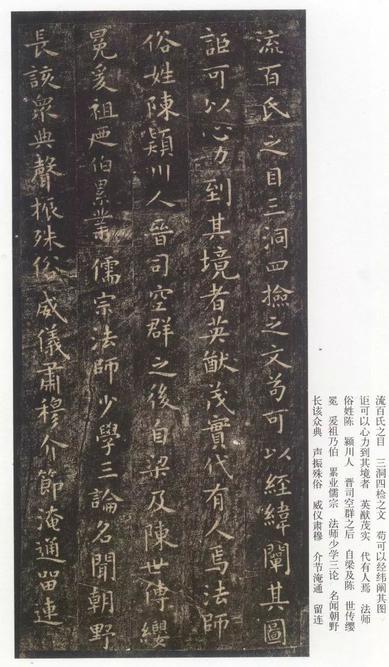 流百氏之目三洞四撿之文苟可以經緯闡其圖
詎可以心力到其境者英猷茂實代有人焉法師
俗姓陳潁川人晉司空群之後自梁及陳世傳纓
冕爰祖迺伯累業儒宗法師少學三論名聞朝野
長該眾典聲振殊俗威儀肅穆介節淹通留連
流百氏之目 三洞四检之文 苟可以经纬阐其图
讵可以心力到其境者 英猷茂实 代有人焉 法师
俗姓陈 颍川人 晋司空群之后 自梁及陈 世传缨
冕 爰祖乃伯 累业儒宗 法师少学三论 名闻朝野
长该众典 声振殊俗 威仪肃穆 介节淹通 留连